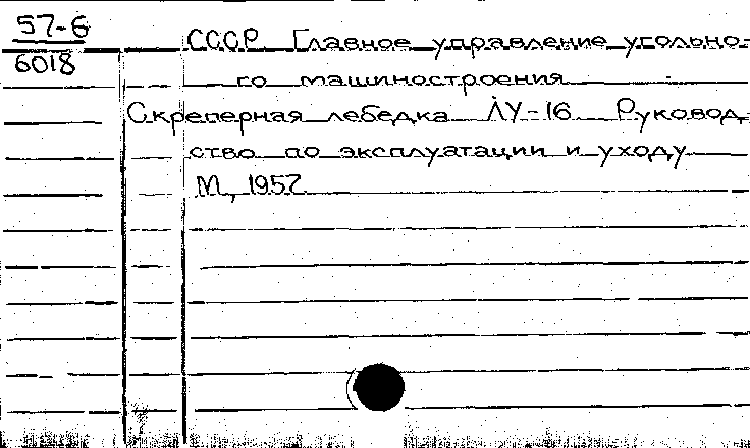 57-6
6018
СССР Главное управление угольно-
го машиностроения
Скреперная лебедка ЛУ-16 Руковод-
ство по эксплуатации и уходу
М, 1957